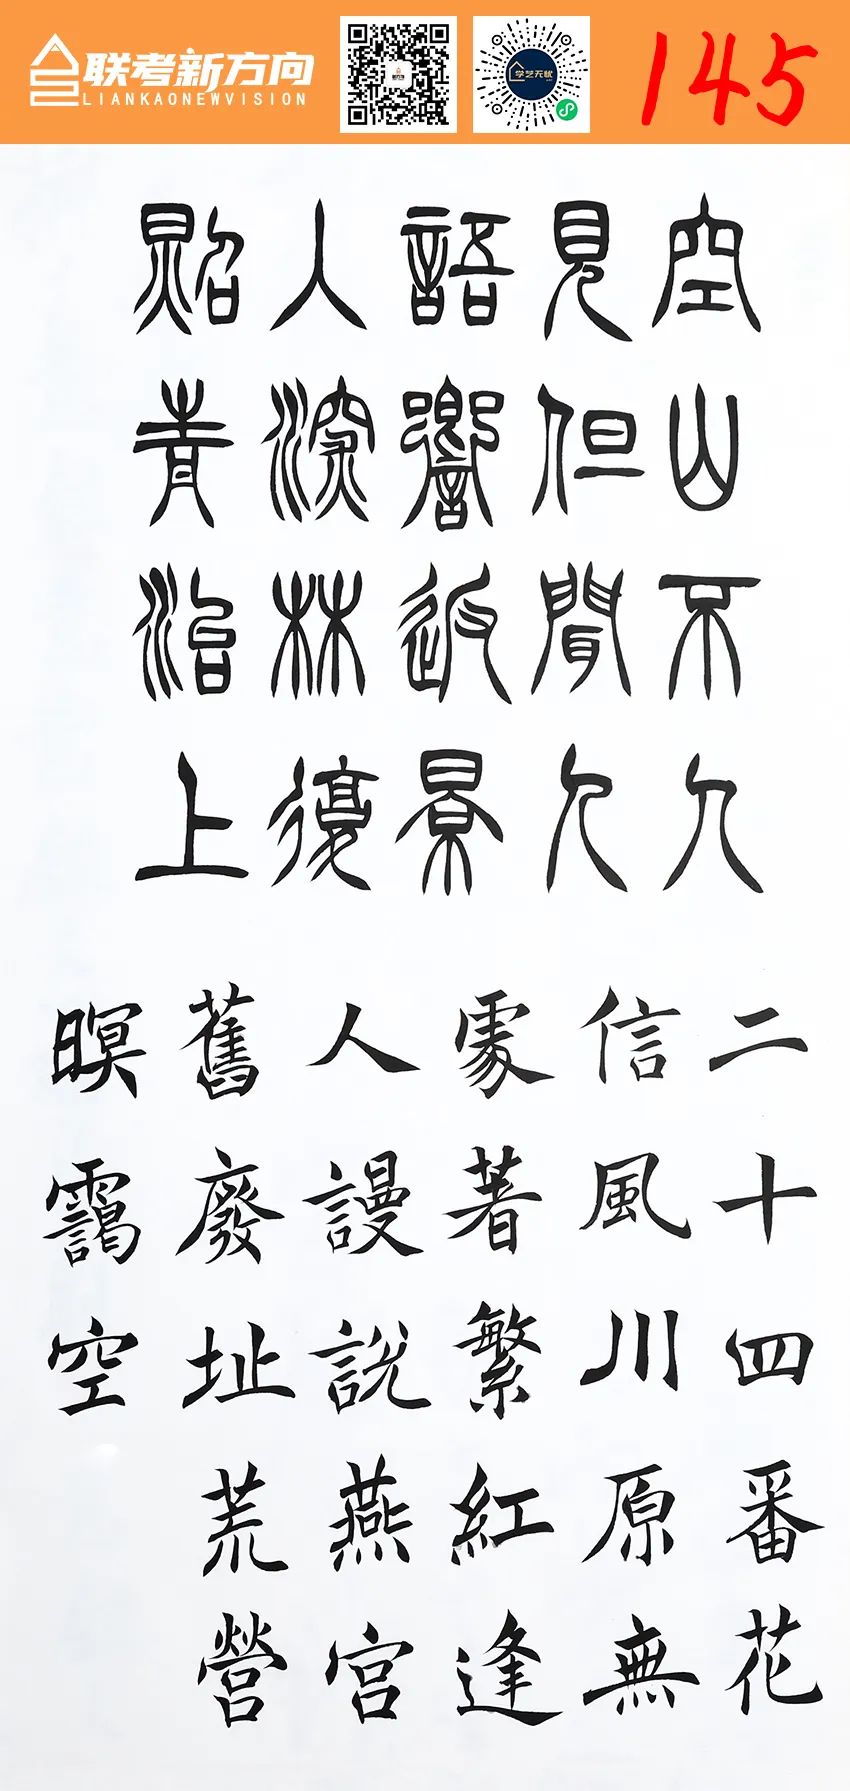 联考新方向
LIANKAONEWVISION
学艺无忧
145
空山不人
見但聞人
語響返景
入深林復
照青治上
二十四番花
信風川原無
處著繁紅逢
人謾說燕宮
舊廢址荒營
暝靄空